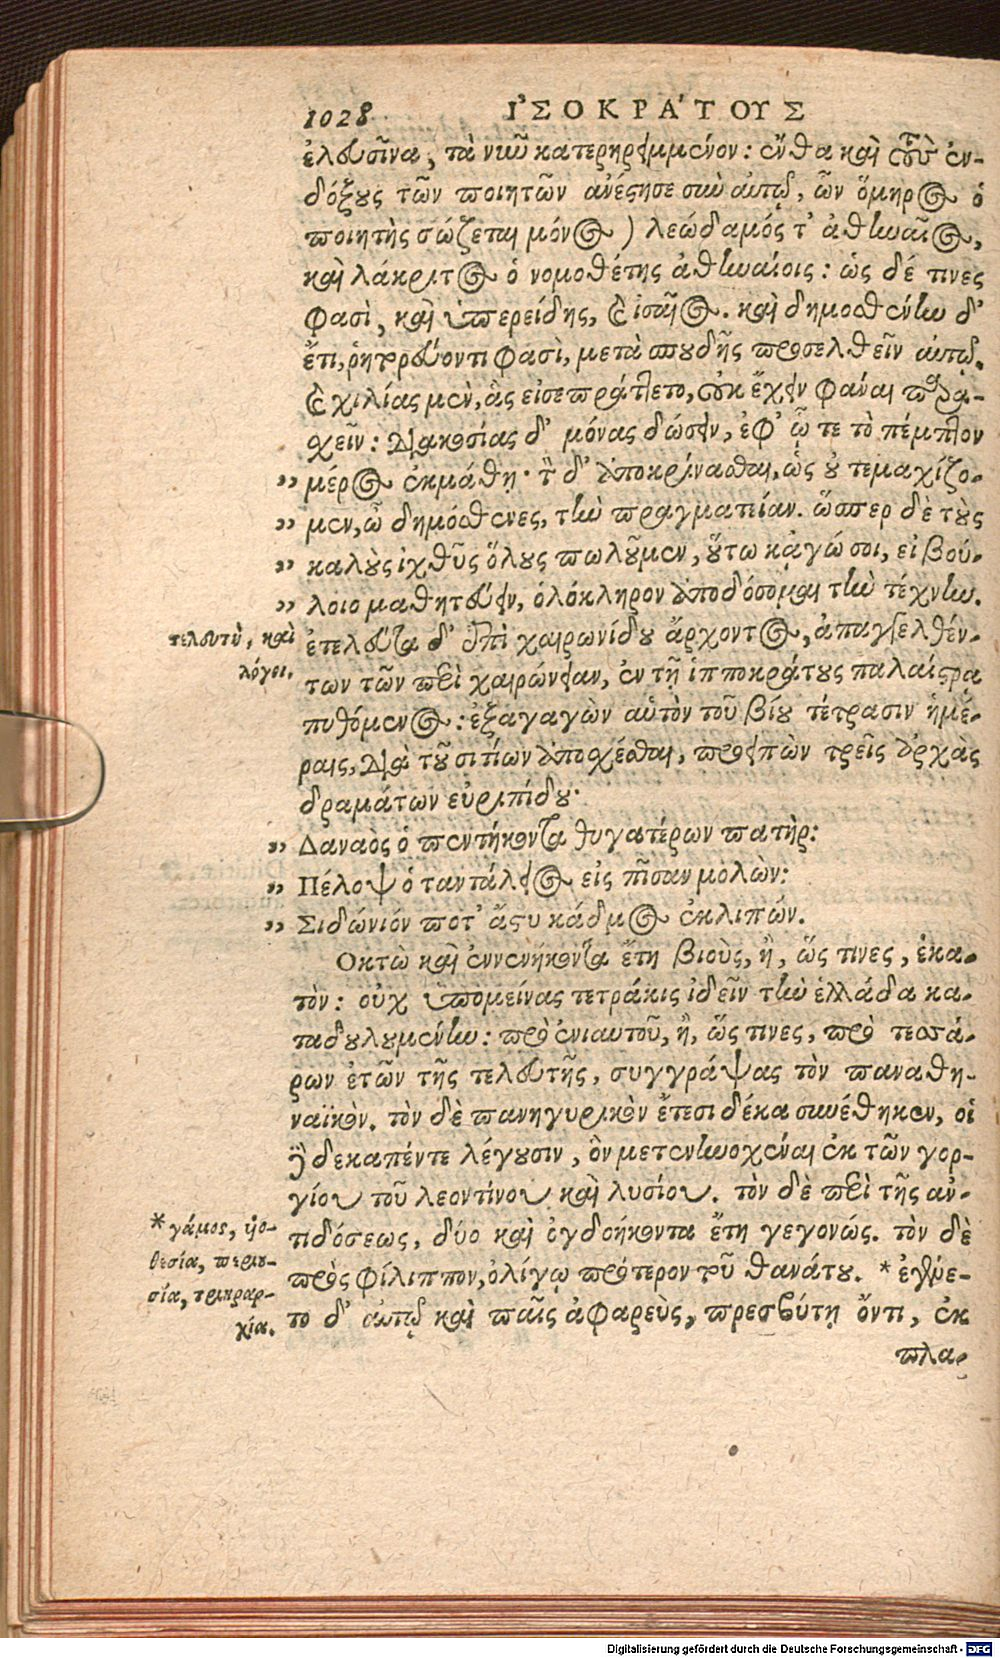 1028 ἸΣΟΚΡΆΤΟΥΣ
ἐλευσῖνα, τὰ νιῦ κατερηρειμμένον: ἔνθα καὶ τοὺς ἐν-
δόξους τῶν ποιητῶν ἀνέστησε σὺν αὐτῷ, ὧν ὅμηρος ὁ
ποιητὴς σώζεται μόνος) λεώδαμός τ' ἀθηναῖος,
καὶ λάκριτος ὁ νομοθέτης ἀθηναίοις: ὡς δέ τινες
φασὶ, καὶ ὑπερείδης, καὶ ἰσαῖος. καὶ δημοσθένην δ'
ἔτι, ῥητορεύοντι φασὶ, μετὰ σπουδῆς προσελθεῖν αὐτῷ.
καὶ χιλίας μὲν, ἃς εἰσεπράττετο, οὐκ ἔχειν φάναι παρα-
σχεῖν: διακοσίας δ' μόνας δώσειν, ἐφ' ᾧ τε τὸ πέμπτον
„ μέρος ἐκμάθῃ· τὸν δ' ἀποκρίνασθαι, ὡς οὐ τεμαχίζο-
„ μεν, ὦ δημόσθενες, τὴν πραγματείαν. ὥσπερ δὲ τοὺς
„ καλοὺς ἰχθῦς ὅλους πωλοῦμεν, οὕτω κᾀγώ σοι, εἰ βού-
„ λοιο μαθητεύειν, ὁλόκληρον ἀποδόσομαι τὴν τέχνην.
τελευτὴ, καὶ
λόγοι.
ἐτελεύτα δ' ἐπὶ χαιρωνίδου ἄρχοντος, ἀπαγγελθέν-
των τῶν περὶ χαιρώνειαν, ἐν τῇ ἱπποκράτους παλαίστρᾳ
πυθόμενος: ἐξαγαγὼν αὑτὸν τοῦ βίου τέτρασιν ἡμέ-
ραις, διὰ τοῦ σιτίων ἀποσχέσθαι, προειπὼν τρεῖς ἀρχὰς
δραμάτων εὐριπίδου·
„ Δαναὸς ὁ πεντήκοντα θυγατέρων πατὴρ:
„ Πέλοψ ὁ ταντάλειος εἰς πῖσαν μολὼν:
„ Σιδώνιόν ποτ' ἄστυ κάδμος ἐκλιπών.
Οκτὼ καὶ ἐννενήκοντα ἔτη βιοὺς, ἢ, ὥς τινες, ἑκα-
τὸν: οὐχ ὑπομείνας τετράκις ἰδεῖν τὴν ἑλλάδα κα-
ταδουλουμένην: πρὸ ἐνιαυτοῦ, ἢ, ὥς τινες, πρὸ τεσσά-
ρων ἐτῶν τῆς τελευτῆς, συγγράψας τὸν παναθη-
ναϊκὸν. τὸν δὲ πανηγυρικὸν ἔτεσι δέκα συνέθηκεν, οἱ
δὲ δεκαπέντε λέγουσιν, ὃν μετενηνοχέναι ἐκ τῶν γορ-
γίου τοῦ λεοντίνου καὶ λυσίου. τὸν δὲ περὶ τῆς ἀν-
τιδόσεως, δύο καὶ ὀγδοήκοντα ἔτη γεγονώς. τὸν δὲ
πρὸς φίλιππον, ὀλίγῳ πρότερον τοῦ θανάτου. * ἐγένε-
το δ' αὐτῷ καὶ παῖς ἀφαρεὺς, πρεσβύτῃ ὄντι, ἐκ
* γάμος, υἱο-
θεσία, περιου-
σία, τριηραρ-
χία.
πλα
Digitalisierung gefördert durch die Deutsche Forschungsgemeinschaft - DFG